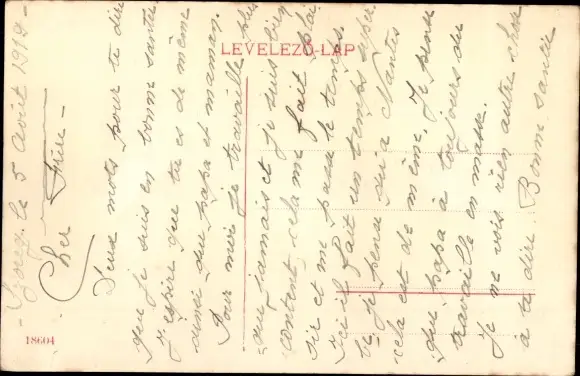 LEVELEZŐ-LAP
le 5 Août 1919 -
Cher Frère -
Deux mots pour te dire
que je suis en bonne santé
J'espère que tu es de même
ainsi que papa et maman.
Pour moi je travaille plus
que jamais et je suis bien
content, cela me fait plai
sir et me passe le temps.
Ici il fait un temps super
be je pense qu'a Nantes
cela est de même. Je pense
que papa à toujours du
travaille en masse.
Je ne vois rien autre chose
à te dire. Bonne santée
18604